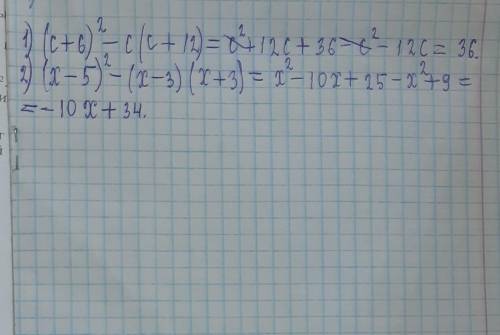 1) (c+6)² - c(c+12) = c² + 12c + 36 - c² - 12c = 36.
2) (x-5)² - (x-3)(x+3) = x² - 10x + 25 - x² + 9 =
= -10x + 34.